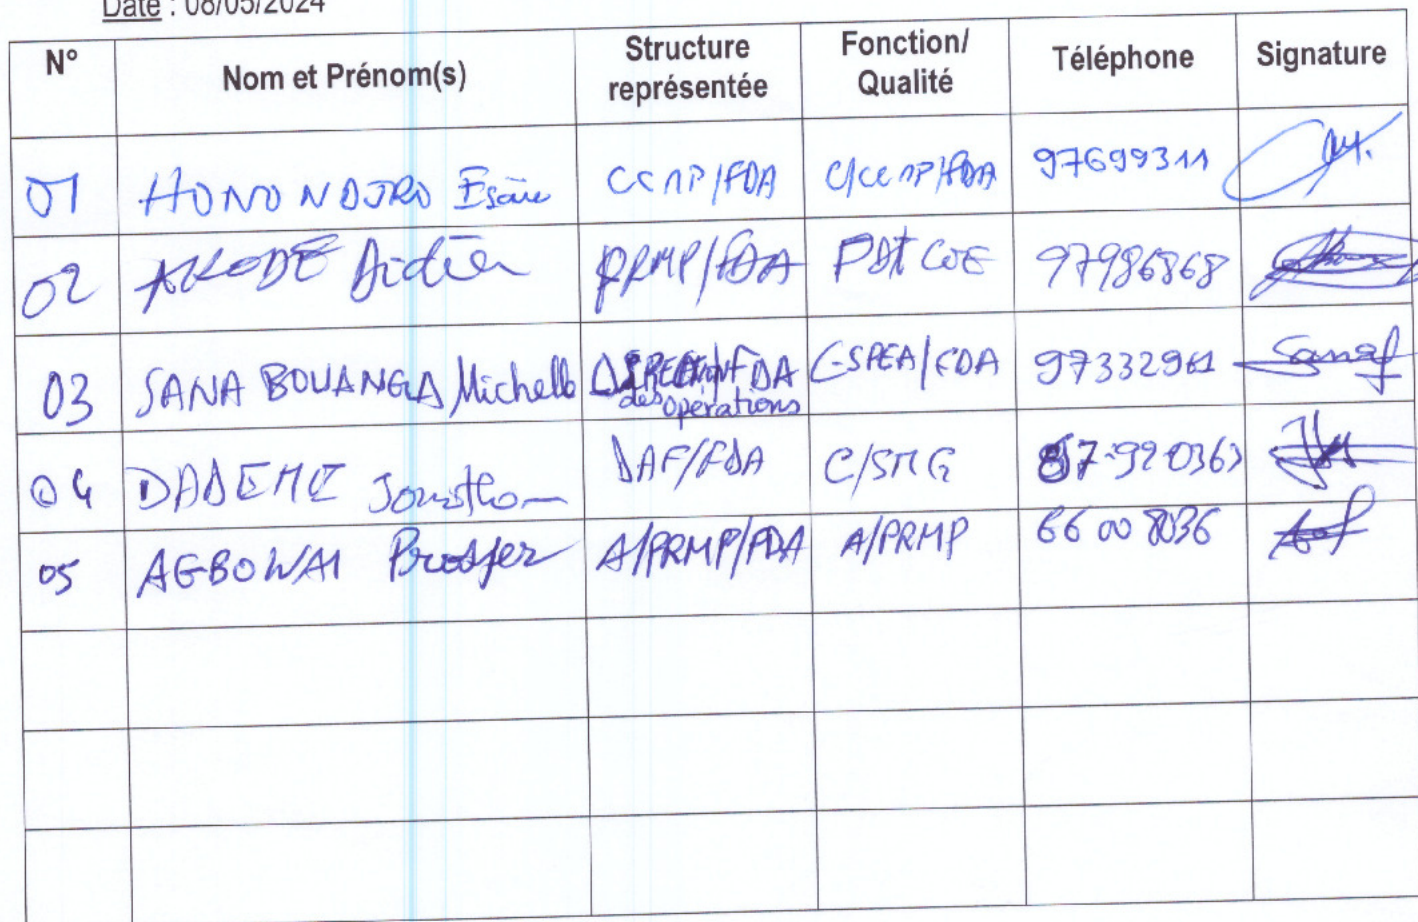 Date : 08/05/2024
N° Nom et Prénom(s) Structure représentée Fonction/ Qualité Téléphone Signature
01 HONONDJRO Esaïe CCMP/FDA C/CCMP/FDA 97699311
02 AKODE Didier PRMP/FDA PDT COE 97986868
03 SANA BOUANGA Michelle FDA des opérations C-SPEA/FDA 97332961
04 DADEME DAF/FDA C/SMG
05 AGBOWAI Prosper A/PRMP/FDA A/PRMP 66 00 8036